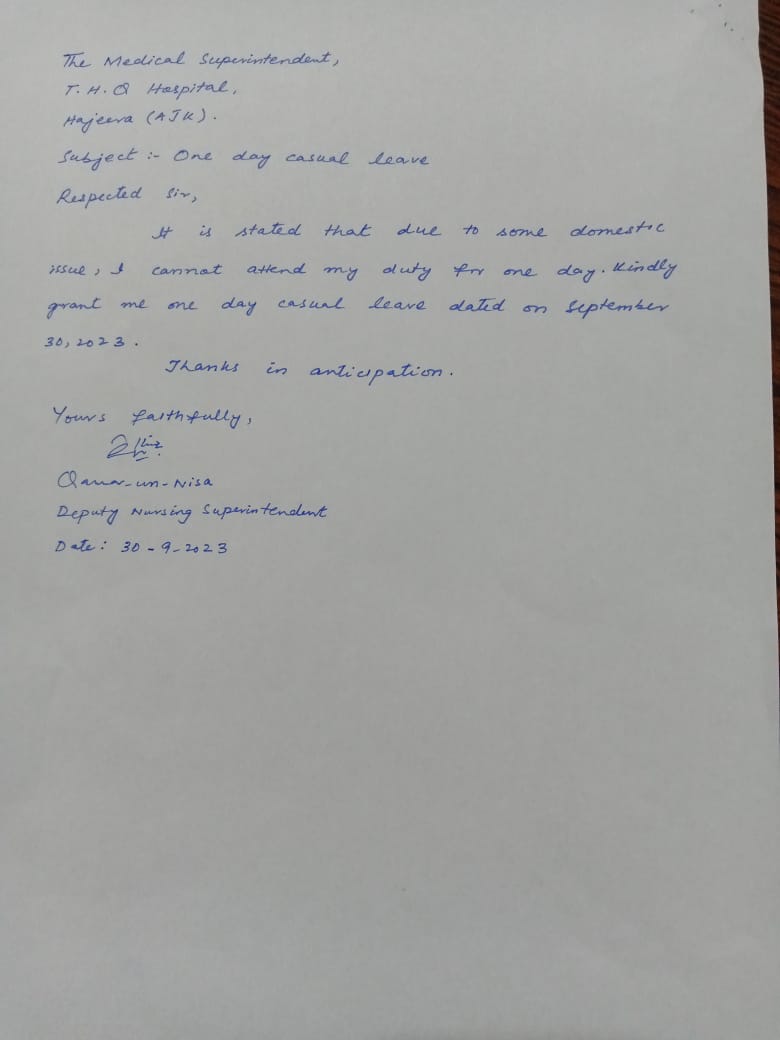 The Medical Superintendent,
T.H.Q Hospital,
Hajeera (AJK).
Subject :- One day casual leave
Respected Sir,
It is stated that due to some domestic
issue, I cannot attend my duty for one day. Kindly
grant me one day casual leave dated on September
30, 2023.
Thanks in anticipation.
Yours faithfully,
Qamar-un-Nisa
Deputy Nursing Superintendent
Date: 30-9-2023